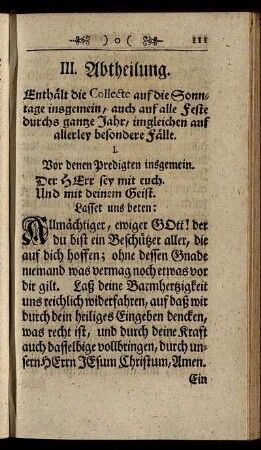 )o( 111
III. Abtheilung.
Enthält die Collecte auf die Sonn⸗
tage insgemein, auch auf alle Feste
durchs gantze Jahr, imgleichen auf
allerley besondere Fälle.
I.
Vor denen Predigten insgemein.
Der HErr sey mit euch.
Und mit deinem Geist.
Lasset uns beten:
Allmächtiger, ewiger GOtt! der
du bist ein Beschützer aller, die
auf dich hoffen; ohne dessen Gnade
niemand was vermag noch etwas vor
dir gilt. Laß deine Barmhertzigkeit
uns reichlich widerfahren, auf daß wir
durch dein heiliges Eingeben dencken,
was recht ist, und durch deine Kraft
auch dasselbige vollbringen, durch un⸗
sern HErrn JEsum Christum, Amen.
Ein